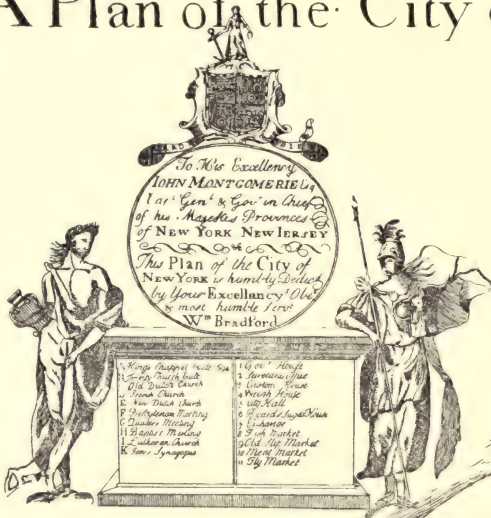 A Plan of the City
To His Excellency
IOHN MONTGOMERIE Esq
Capt Genl & Govr in Cheif
of his Majesties Provinces
of NEW YORK NEW IERSEY
&c
This Plan of the City of
NEW YORK is humbly Dedicd
by Your Excellency's
& most humble Servt
Wm Bradford
Kings Chappel built
Trinity Church built
Old Dutch Church
French Church
E New Dutch Church
F Presbyterian Meeting
G Quakers Meeting
H Baptist Meeting
I Lutheran Church
K Jews Synagogue
1 Govrs House
2
3 Custom House
4 Weigh House
5 City Hall
6 Byards Sugar House
7 Exchange
8 Fish Market
9 Old Slip Market
10 Meat Market
11 Fly Market